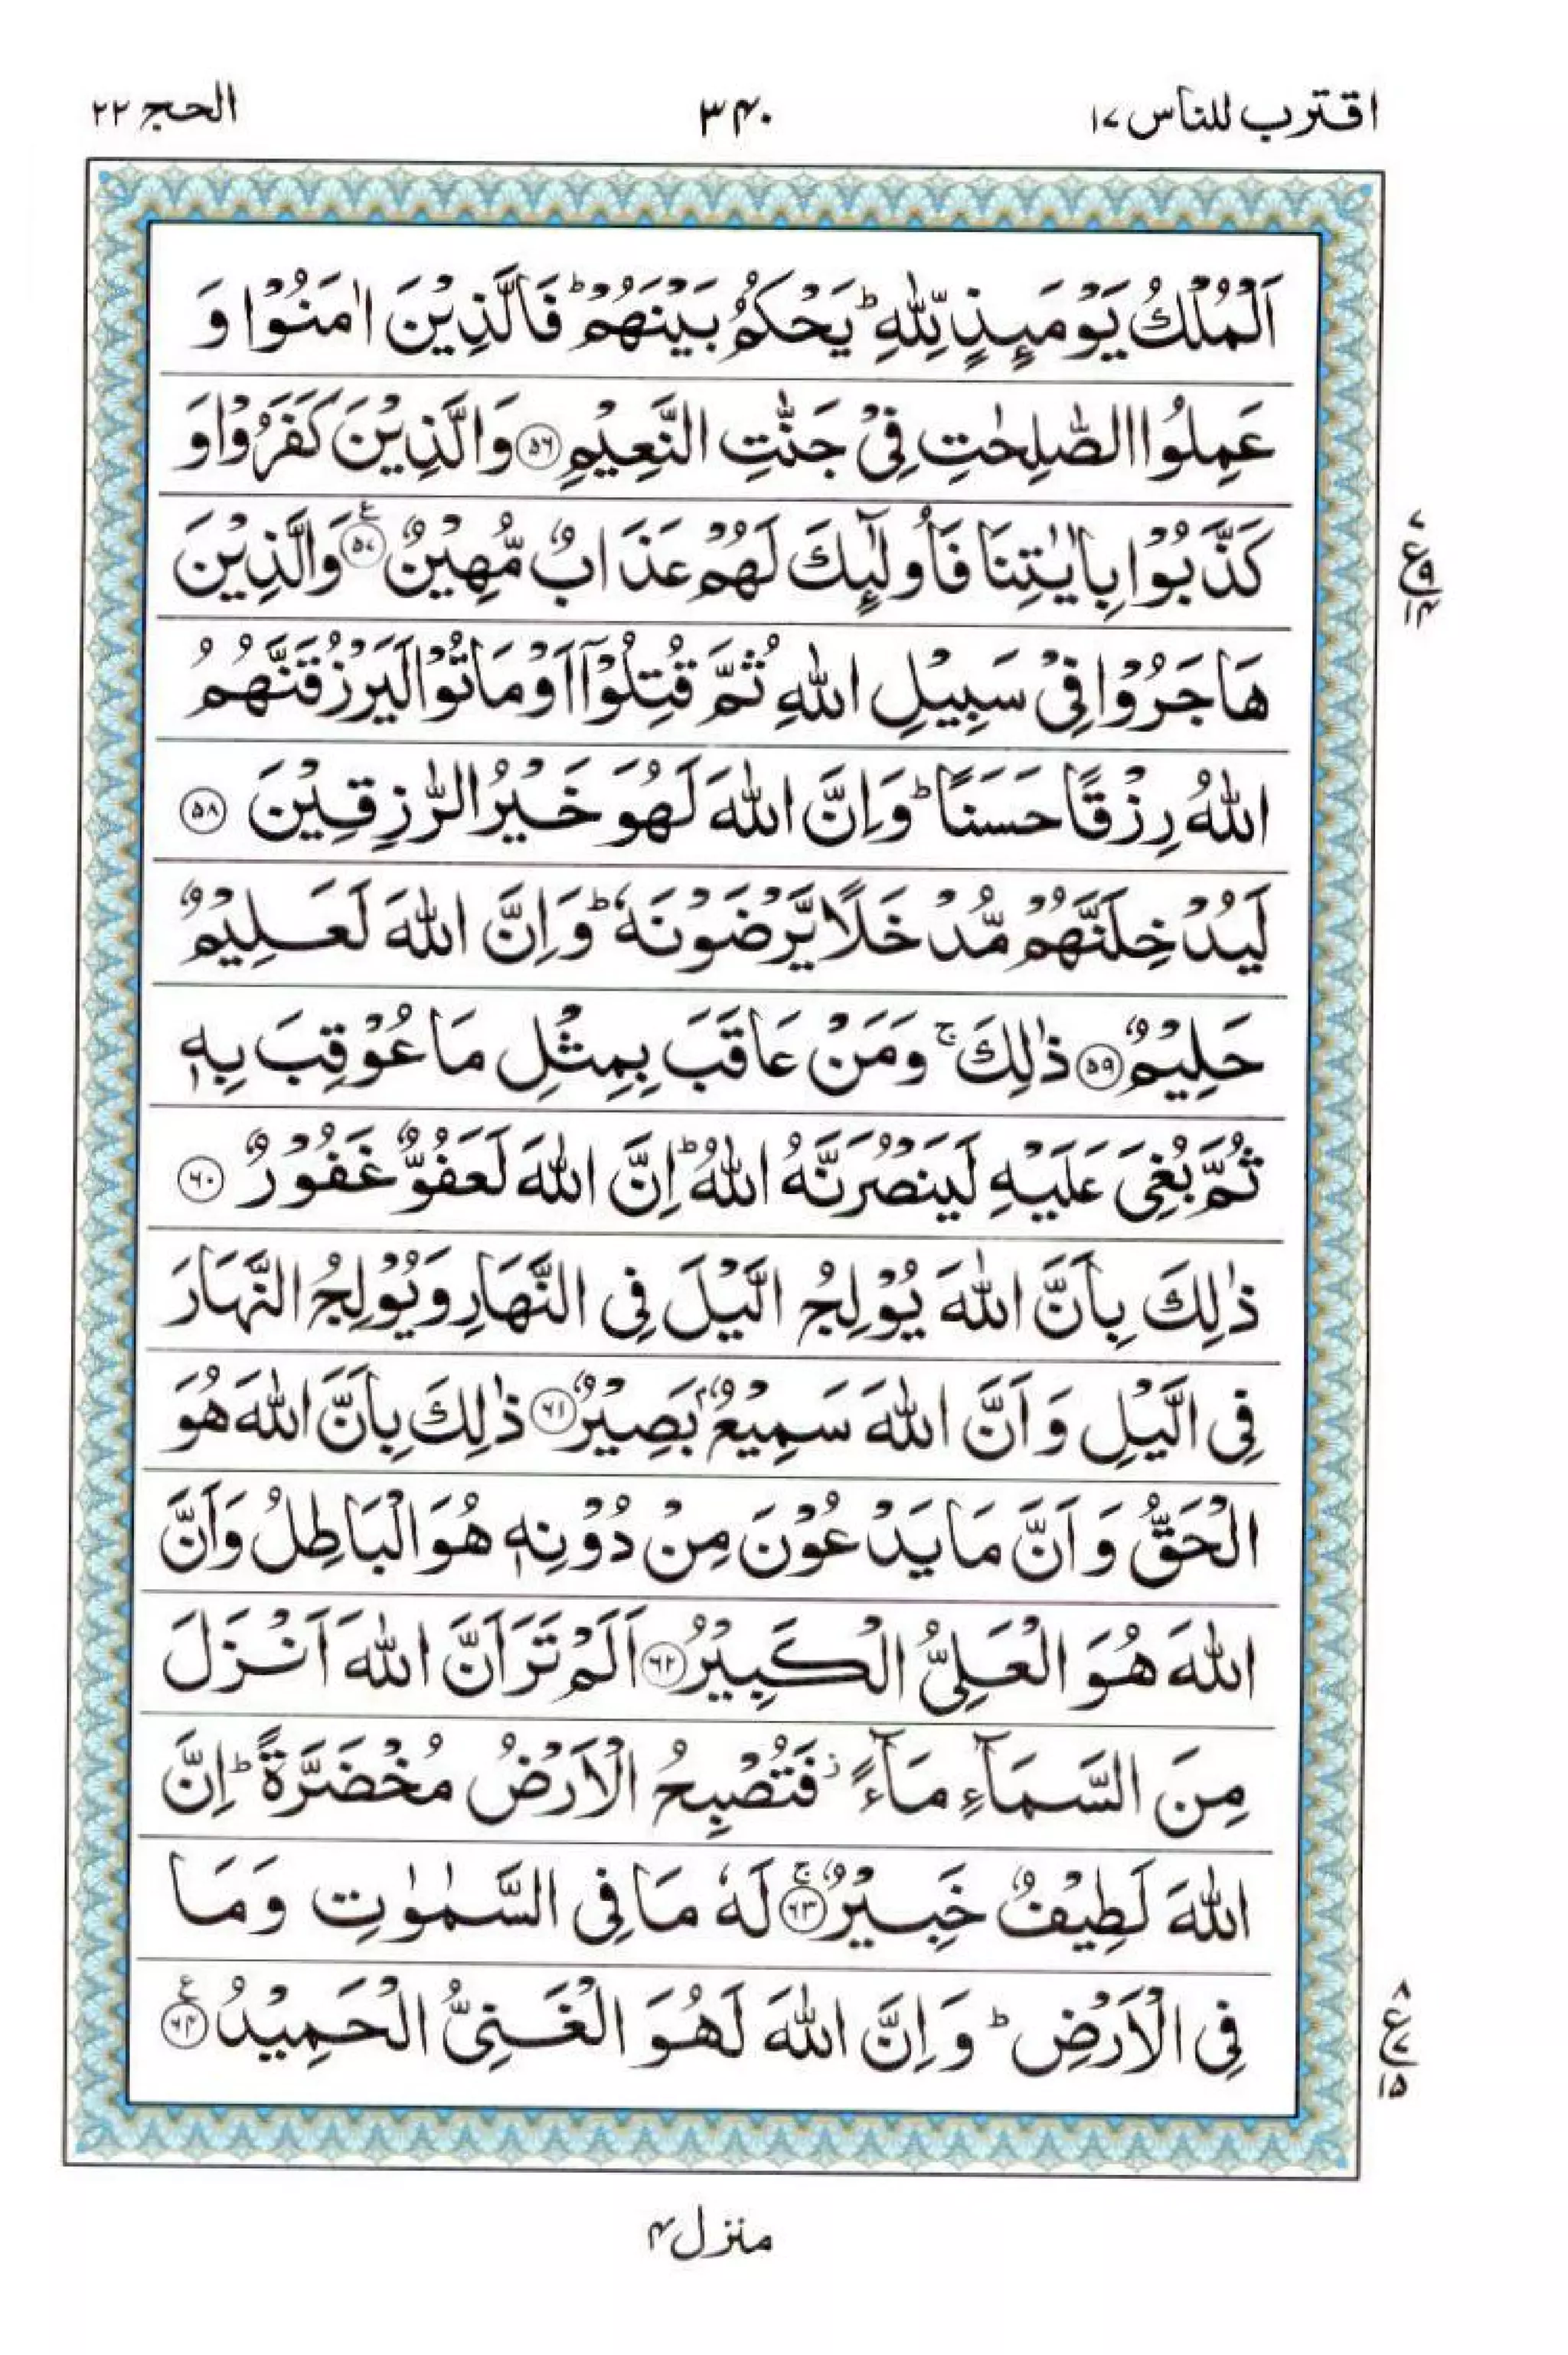 اقترب للناس ۱۷
۳۴۰
الحج ۲۲
اَلْمُلْكُ يَوْمَىِٕذٍ لِّلّٰهِ ؕ يَحْكُمُ بَيْنَهُمْ ؕ فَالَّذِيْنَ اٰمَنُوْا وَ
عَمِلُوا الصّٰلِحٰتِ فِيْ جَنّٰتِ النَّعِيْمِ ۝۵۶ وَالَّذِيْنَ كَفَرُوْا وَ
كَذَّبُوْا بِاٰيٰتِنَا فَاُولٰٓىِٕكَ لَهُمْ عَذَابٌ مُّهِيْنٌ ۝۵۷ ع وَالَّذِيْنَ
ع ۷ ۹ ۱۴
هَاجَرُوْا فِيْ سَبِيْلِ اللّٰهِ ثُمَّ قُتِلُوْۤا اَوْ مَاتُوْا لَيَرْزُقَنَّهُمُ
اللّٰهُ رِزْقًا حَسَنًا ؕ وَاِنَّ اللّٰهَ لَهُوَ خَيْرُ الرّٰزِقِيْنَ ۝۵۸
لَيُدْخِلَنَّهُمْ مُّدْخَلًا يَّرْضَوْنَهٗ ؕ وَاِنَّ اللّٰهَ لَعَلِيْمٌ
حَلِيْمٌ ۝۵۹ ذٰلِكَ ۚ وَمَنْ عَاقَبَ بِمِثْلِ مَا عُوْقِبَ بِهٖ
ثُمَّ بُغِيَ عَلَيْهِ لَيَنْصُرَنَّهُ اللّٰهُ ؕ اِنَّ اللّٰهَ لَعَفُوٌّ غَفُوْرٌ ۝۶۰
ذٰلِكَ بِاَنَّ اللّٰهَ يُوْلِجُ الَّيْلَ فِي النَّهَارِ وَيُوْلِجُ النَّهَارَ
فِي الَّيْلِ وَ اَنَّ اللّٰهَ سَمِيْعٌۢ بَصِيْرٌ ۝۶۱ ذٰلِكَ بِاَنَّ اللّٰهَ هُوَ
الْحَقُّ وَ اَنَّ مَا يَدْعُوْنَ مِنْ دُوْنِهٖ هُوَ الْبَاطِلُ وَاَنَّ
اللّٰهَ هُوَ الْعَلِيُّ الْكَبِيْرُ ۝۶۲ اَلَمْ تَرَ اَنَّ اللّٰهَ اَنْزَلَ
مِنَ السَّمَآءِ مَآءً ؗ فَتُصْبِحُ الْاَرْضُ مُخْضَرَّةً ؕ اِنَّ
اللّٰهَ لَطِيْفٌ خَبِيْرٌ ۝۶۳ ۚ لَهٗ مَا فِي السَّمٰوٰتِ وَمَا
فِي الْاَرْضِ ؕ وَ اِنَّ اللّٰهَ لَهُوَ الْغَنِيُّ الْحَمِيْدُ ۝۶۴ ع
ع ۸ ۷ ۱۵
منزل ۴